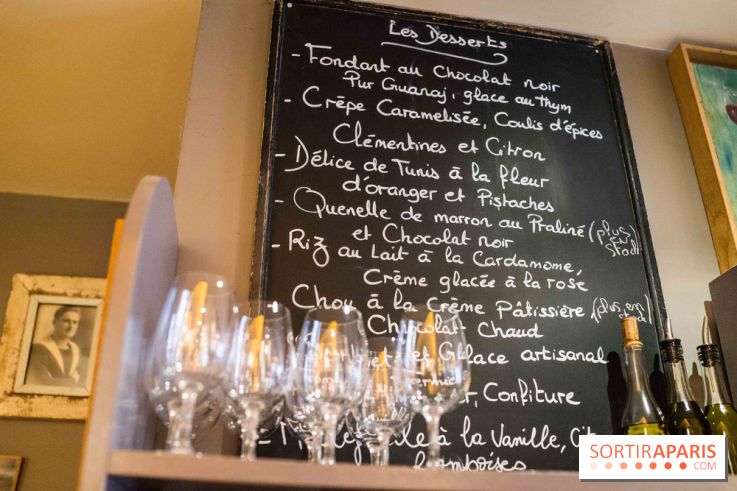 Les Desserts
- Fondant au Chocolat noir
Pur Guanaj, glace au thym
- Crêpe Caramelisée, Coulis d'épices
Clémentines et Citron
- Délice de Tunis à la fleur
d'oranger et Pistaches
- Quenelle de marron au Praliné (plus
et Chocolat noir en stock)
- Riz au Lait à la Cardamome,
Crème glacée à la rose
Chou à la Crème Pâtissière (plus en
Chocolat Chaud stock)
et Glace artisanal
, Confiture
à la Vanille,
framboises
SORTIRAPARIS
.COM